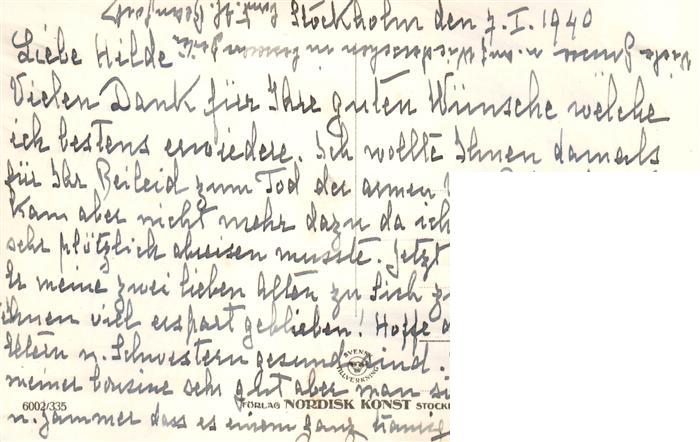 Stockholm den 7.I.1940
Liebe Hilde
Vielen Dank für Ihre guten Wünsche welche
ich bestens erwiedere. Ich wollte Ihnen damals
für Ihr Beileid zum Tod der armen
kam aber nicht mehr dazu da ich
sehr plötzlich abreisen musste. Jetzt
Er meine zwei lieben Alten zu Sich
Ihnen viel erspart geblieben! Hoffe
Eltern u. Schwestern gesund sind.
meiner Cousine sehr gut aber man
u. Jammer dass es einem ganz traurig
SVENSK TILLVERKNING
6002/335
FÖRLAG NORDISK KONST STOCK